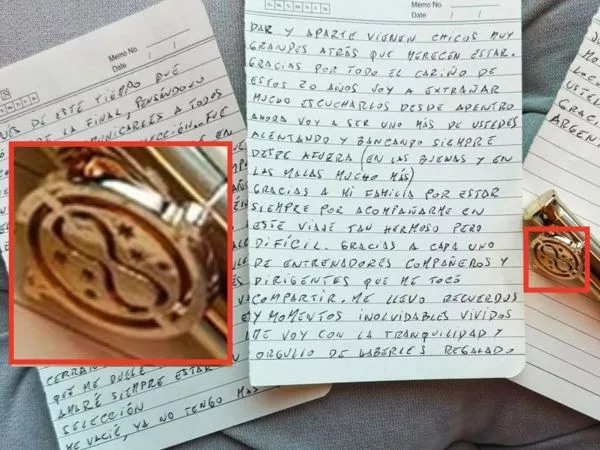 Memo No.
Date / /
DE ESTE TIEMPO QUE
LA FINAL, PENSÁNDOLO
COMUNICARLES A TODOS
SELECCIÓN. FUE
EN
CERRAR
QUE ME DUELE
AMARÉ SIEMPRE ESTAR
SELECCIÓN
ME VACIÉ, YA NO TENGO MAS
Memo No.
Date / /
DAR Y APARTE VIENEN CHICOS MUY
GRANDES ATRÁS QUE MERECEN ESTAR.
GRACIAS POR TODO EL CARIÑO DE
ESTOS 20 AÑOS VOY A EXTRAÑAR
MUCHO ESCUCHARLOS DESDE ADENTRO
AHORA VOY A SER UNO MÁS DE USTEDES
ALENTANDO Y BANCANDO SIEMPRE
DESDE AFUERA (EN LAS BUENAS Y EN
LAS MALAS MUCHO MÁS)
GRACIAS A MI FAMILIA POR ESTAR
SIEMPRE POR ACOMPAÑARME EN
ESTE VIAJE TAN HERMOSO PERO
DIFÍCIL. GRACIAS A CADA UNO
DE ENTRENADORES COMPAÑEROS Y
DIRIGENTES QUE ME TOCÓ
COMPARTIR. ME LLEVO RECUERDOS
Y MOMENTOS INOLVIDABLES VIVIDOS
ME VOY CON LA TRANQUILIDAD Y
ORGULLO DE HABERLES REGALADO